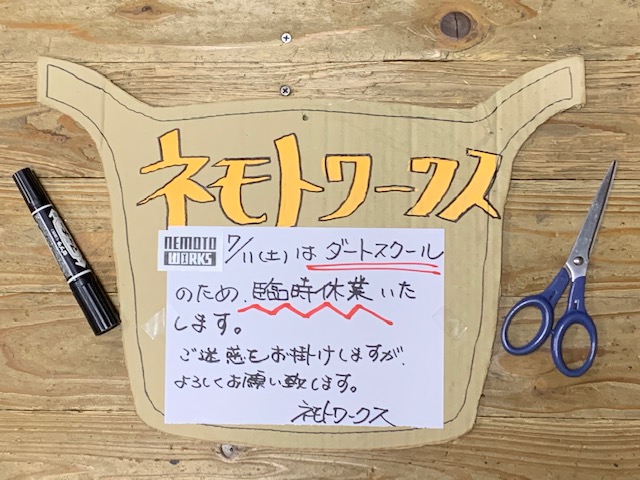 ネモトワークス
NEMOTO
WORKS
7/11(土)はダートスクール
のため、臨時休業いた
します。
ご迷惑をお掛けしますが、
よろしくお願い致します。
ネモトワークス